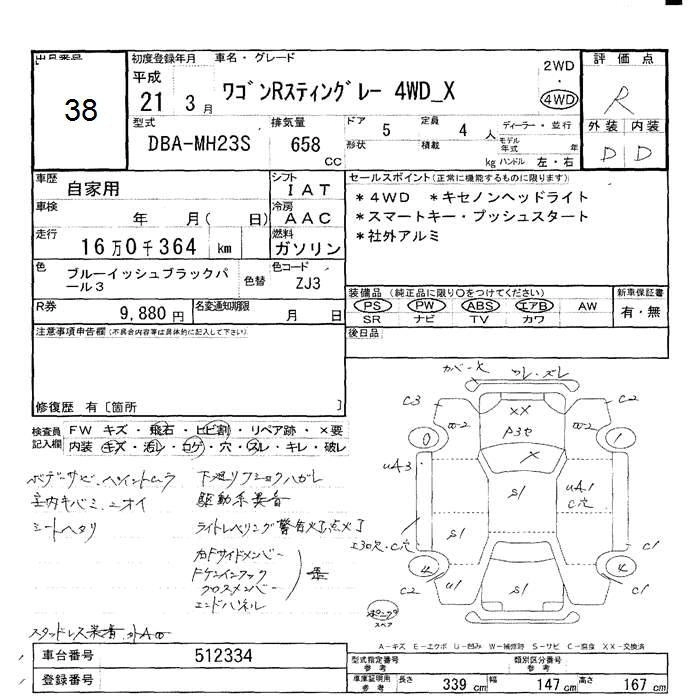 出品番号
38
初度登録年月
平成
21 3月
車名・グレード
ワゴンRスティングレー 4WD_X
2WD
・
4WD
評価点
R
外装 内装
D D
型式
DBA-MH23S
排気量
658
cc
ドア 5
定員 4 人
形状
積載
kg
ディーラー・並行
モデル年式 年
ハンドル 左・右
車歴
自家用
シフト
I A T
車検
年 月( 日)
冷房
A A C
走行
16万0千364 km
燃料
ガソリン
色
ブルーイッシュブラックパール3
色替
色コード
ZJ3
R券
9,880 円
名変通知期限
月 日
セールスポイント(正常に機能するものに限ります)
*4WD *キセノンヘッドライト
*スマートキー・プッシュスタート
*社外アルミ
装備品 (純正品に限り○をつけてください)
PS PW ABS エアB AW
SR ナビ TV カワ
新車保証書
有・無
後日品
注意事項申告欄(不具合内容等は具体的に記入して下さい)
修復歴 有〔箇所 〕
検査員
記入欄
FW キズ・飛石・ヒビ割・リペア跡・×要
内装 キズ・汚レ・コゲ・穴・スレ・キレ・破レ
ボデーサビ、ペイントムラ
室内キバミ、ニオイ
シートヘタリ
駆動系異音
ライトレベリング警告灯点灯
クロスメンバー
エンドパネル
スタッドレス装着
C3
C2
XX
P3セ
X
S/
S/
S/
S/
C穴
C/
C/
C2
U/
スペア
A-キズ E-エクボ U-凹み W-補修跡 S-サビ C-腐食 XX-交換済
車台番号
512334
登録番号
型式指定番号
参考
類別区分番号
参考
車庫証明用
参考
長さ 339 cm
幅 147 cm
高さ 167 cm